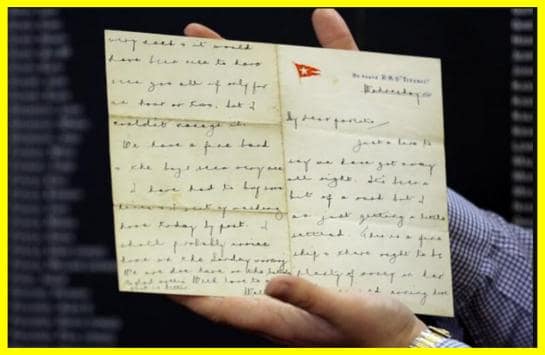 On board R.M.S "Titanic"
Wednesday
My dear parents,
Just a line to
say we have got away
all right. It's been a
bit of a rush but I
am just getting a little
settled. This is a fine
ship & there ought to be
plenty of money on her
it would
have been nice to have
seen you all if only for
an hour or two, but I
couldn't manage it.
We have a fine band
& the boys seem very nice
I have had to buy some
linen & I sent my washing
home today by post. I
shall probably arrive
home on the Sunday morning
We are due here on the
With love to